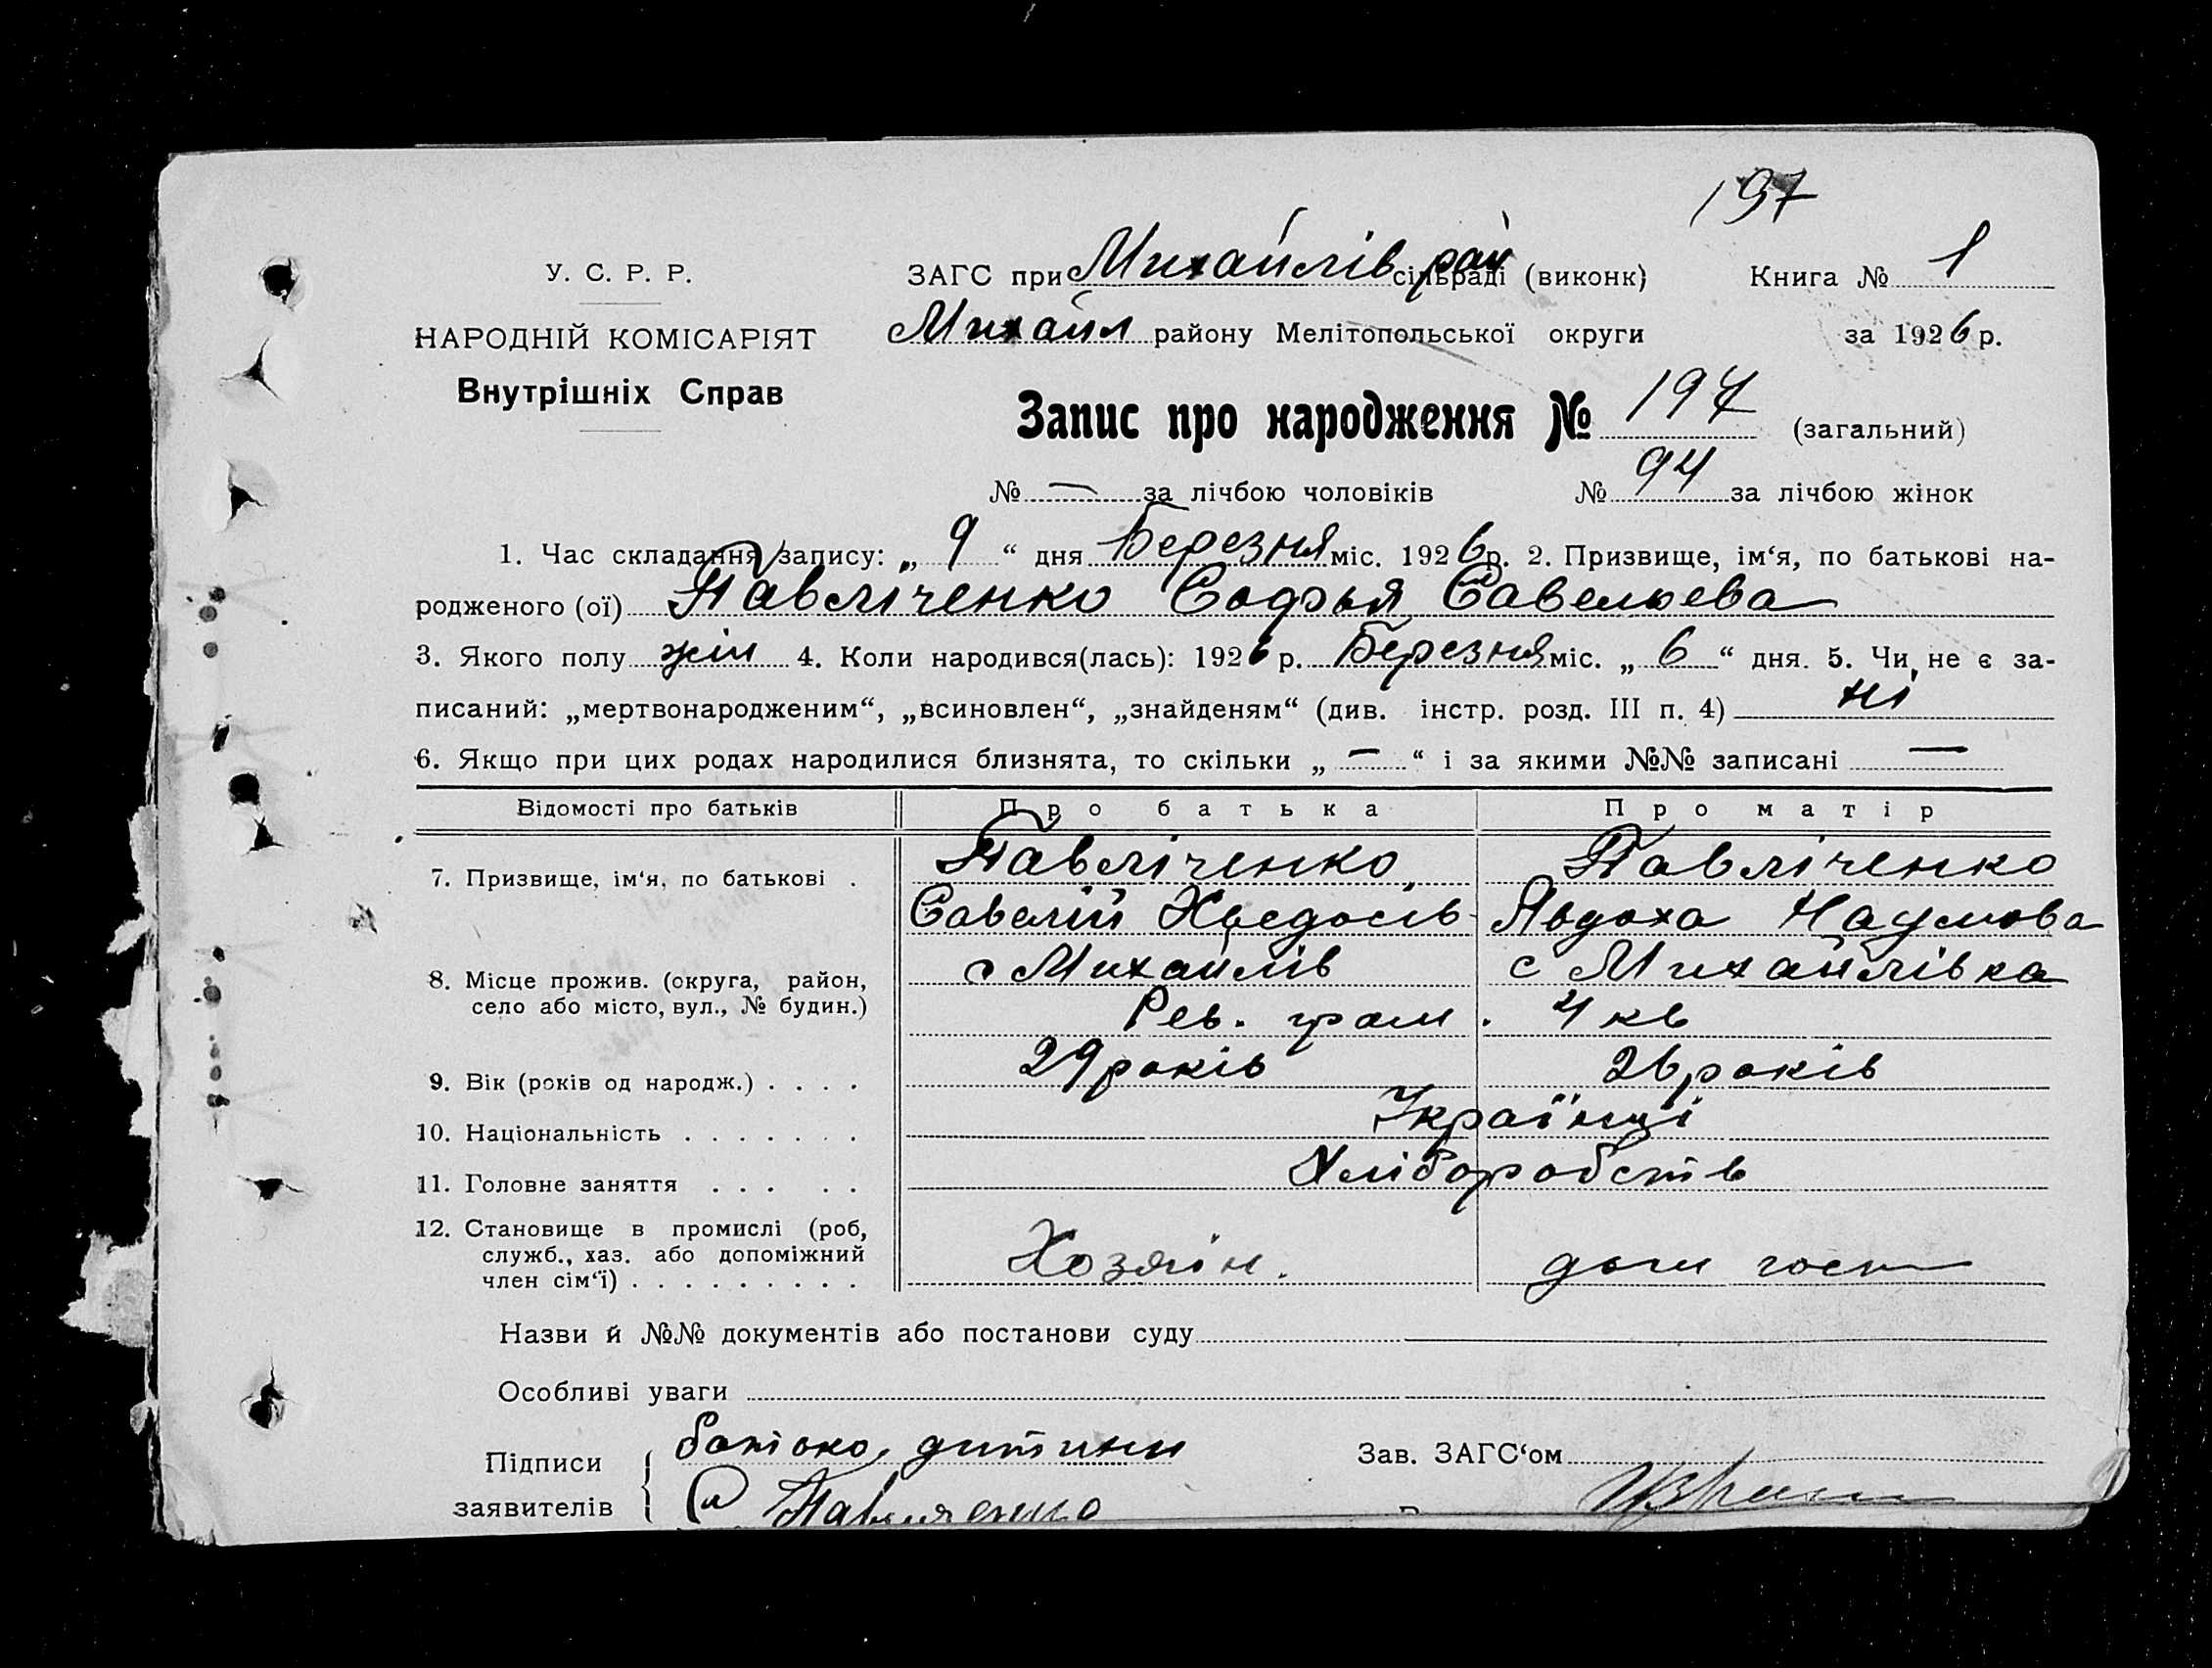 197
У. С. Р. Р.
ЗАГС при Михайлів рай сільраді (виконк)
Книга № 1
НАРОДНІЙ КОМІСАРІЯТ
Михайл району Мелітопольської округи
за 1926 р.
Внутрішніх Справ
Запис про народження № 197 (загальний)
№ — за лічбою чоловіків № 94 за лічбою жінок
1. Час складання запису: „ 9 “ дня Березня міс. 1926 р. 2. Призвище, ім‘я, по батькові на-
родженого (ої) Павліченко Софья Савельева
3. Якого полу жін 4. Коли народився(лась): 1926 р. Березня міс. „ 6 “ дня. 5. Чи не є за-
писаний: „мертвонародженим“, „всиновлен“, „знайденям“ (див. інстр. розд. III п. 4) ні
6. Якщо при цих родах народилися близнята, то скільки „ — “ і за якими №№ записані —
Відомості про батьків Про батька Про матір
7. Призвище, ім‘я, по батькові . Павліченко Павліченко
Савелій Хведосів Явдоха Наумова
8. Місце прожив. (округа, район, с Михайлів с Михайлівка
село або місто, вул., № будин.) Рев. грам. 4 кв
9. Вік (років од народж.) . . . . 29 років 26 років
10. Національність . . . . . . . Українці
11. Головне заняття . . . . . Хліборобств
12. Становище в промислі (роб,
служб., хаз. або допоміжний Хозяін.
член сім‘ї) . . . . . . . . .
Назви й №№ документів або постанови суду
Особливі уваги
Підписи батько дитини
Зав. ЗАГС‘ом
заявителів Павличенко